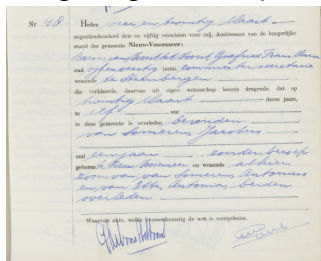 Nr 48 Heden vier en twintig Maart
negentienhonderd drie en vijftig verscheen voor mij, Ambtenaar van de burgerlijke
stand der gemeente Nieuw-Vossemeer:
oud, jaren,
wonende te Steenbergen
die verklaarde, daarvan uit eigen wetenschap kennis dragende, dat op
twintig Maart dezes jaars,
te elf uur
in deze gemeente is overleden bevonden
van Someren Jacobus
oud een jaar, zonder beroep
geboren te Nieuw Vossemeer en wonende alhier
zoon van van Someren Antonius
en van Etten Antonia, beiden
overleden
Waarvan akte, welke overeenkomstig de wet is voorgelezen.